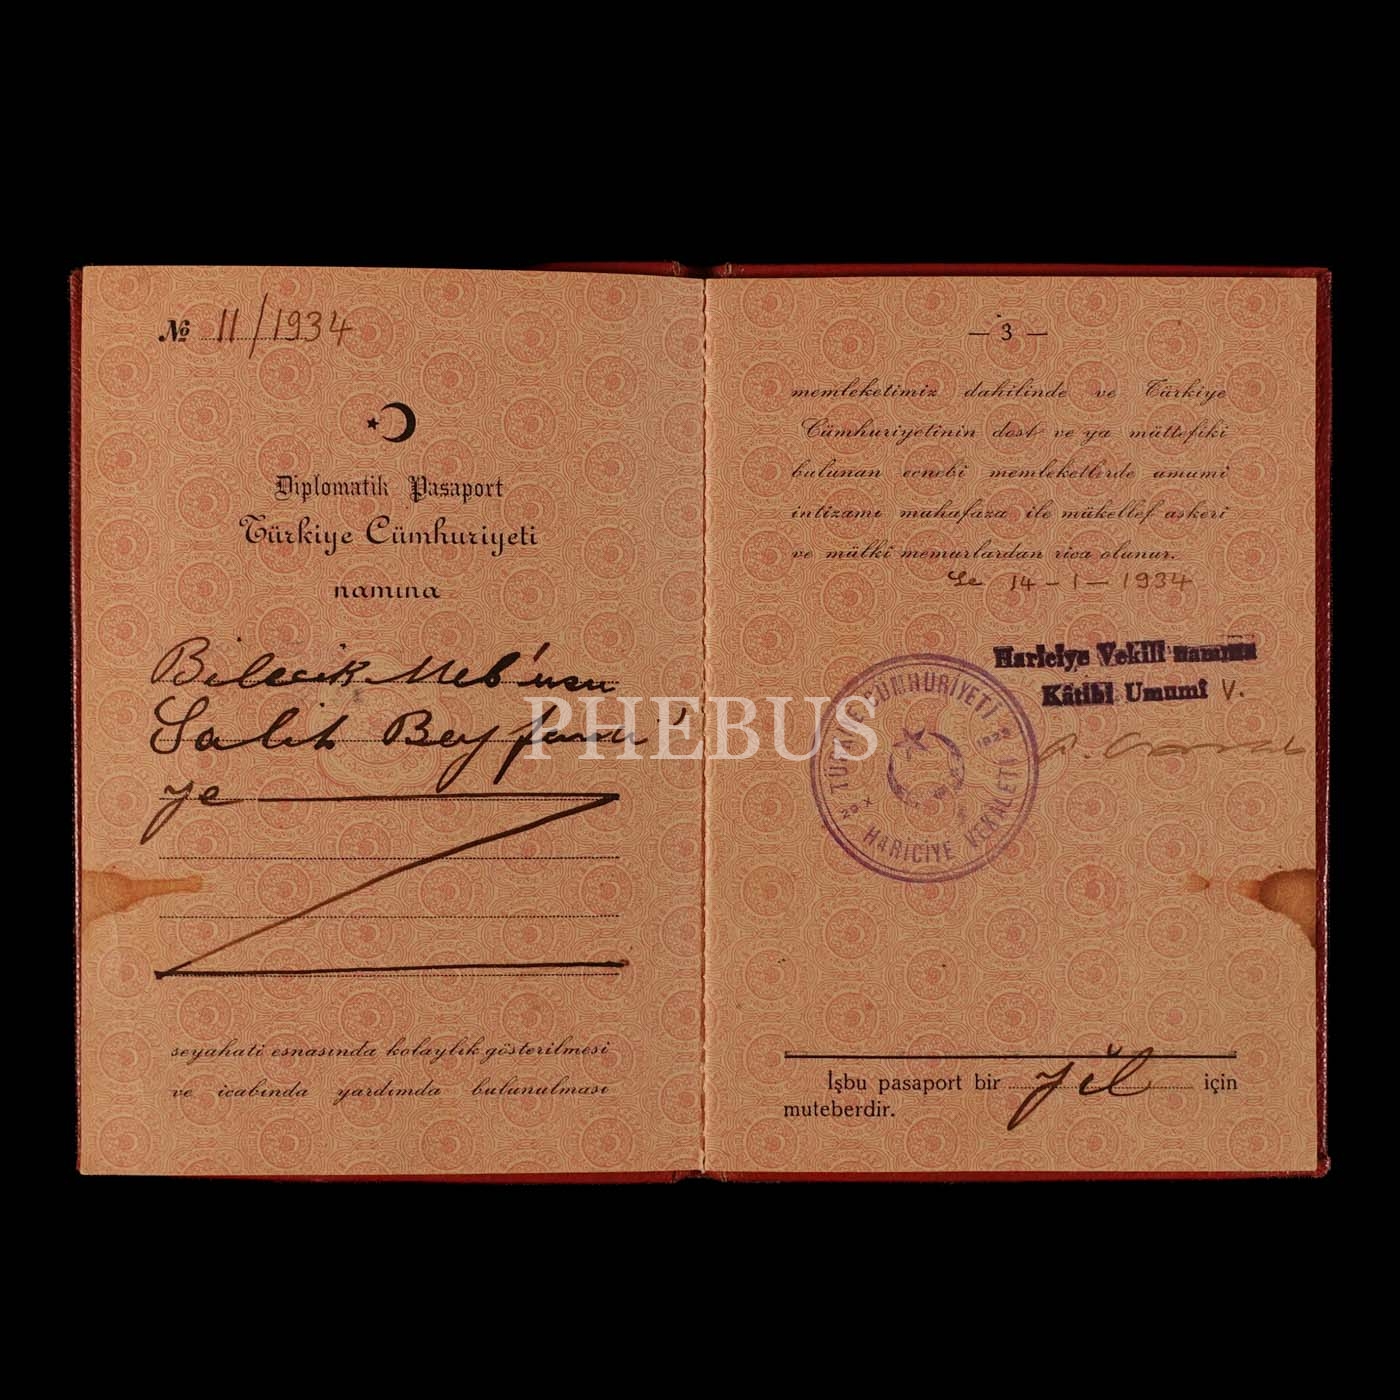 № 11/1934
Diplomatik Pasaport
Türkiye Cümhuriyeti
namına
Bilecik Meb'usu
Salih Beyfendi
ye
seyahati esnasında kolaylık gösterilmesi
ve icabında yardımda bulunulması
— 3 —
memleketimiz dahilinde ve Türkiye
Cümhuriyetinin dost ve ya müttefiki
bulunan ecnebi memleketlerde umumî
intizamı muhafaza ile mükellef askerî
ve mülkî memurlardan rica olunur.
Le 14 - 1 - 1934
Hariciye Vekili namına
Kâtibi Umumî V.
TÜRKİYE CÜMHURİYETİ
29 X 1923
HARİCİYE VEKALETİ
İşbu pasaport bir yıl için
muteberdir.
PHEBUS